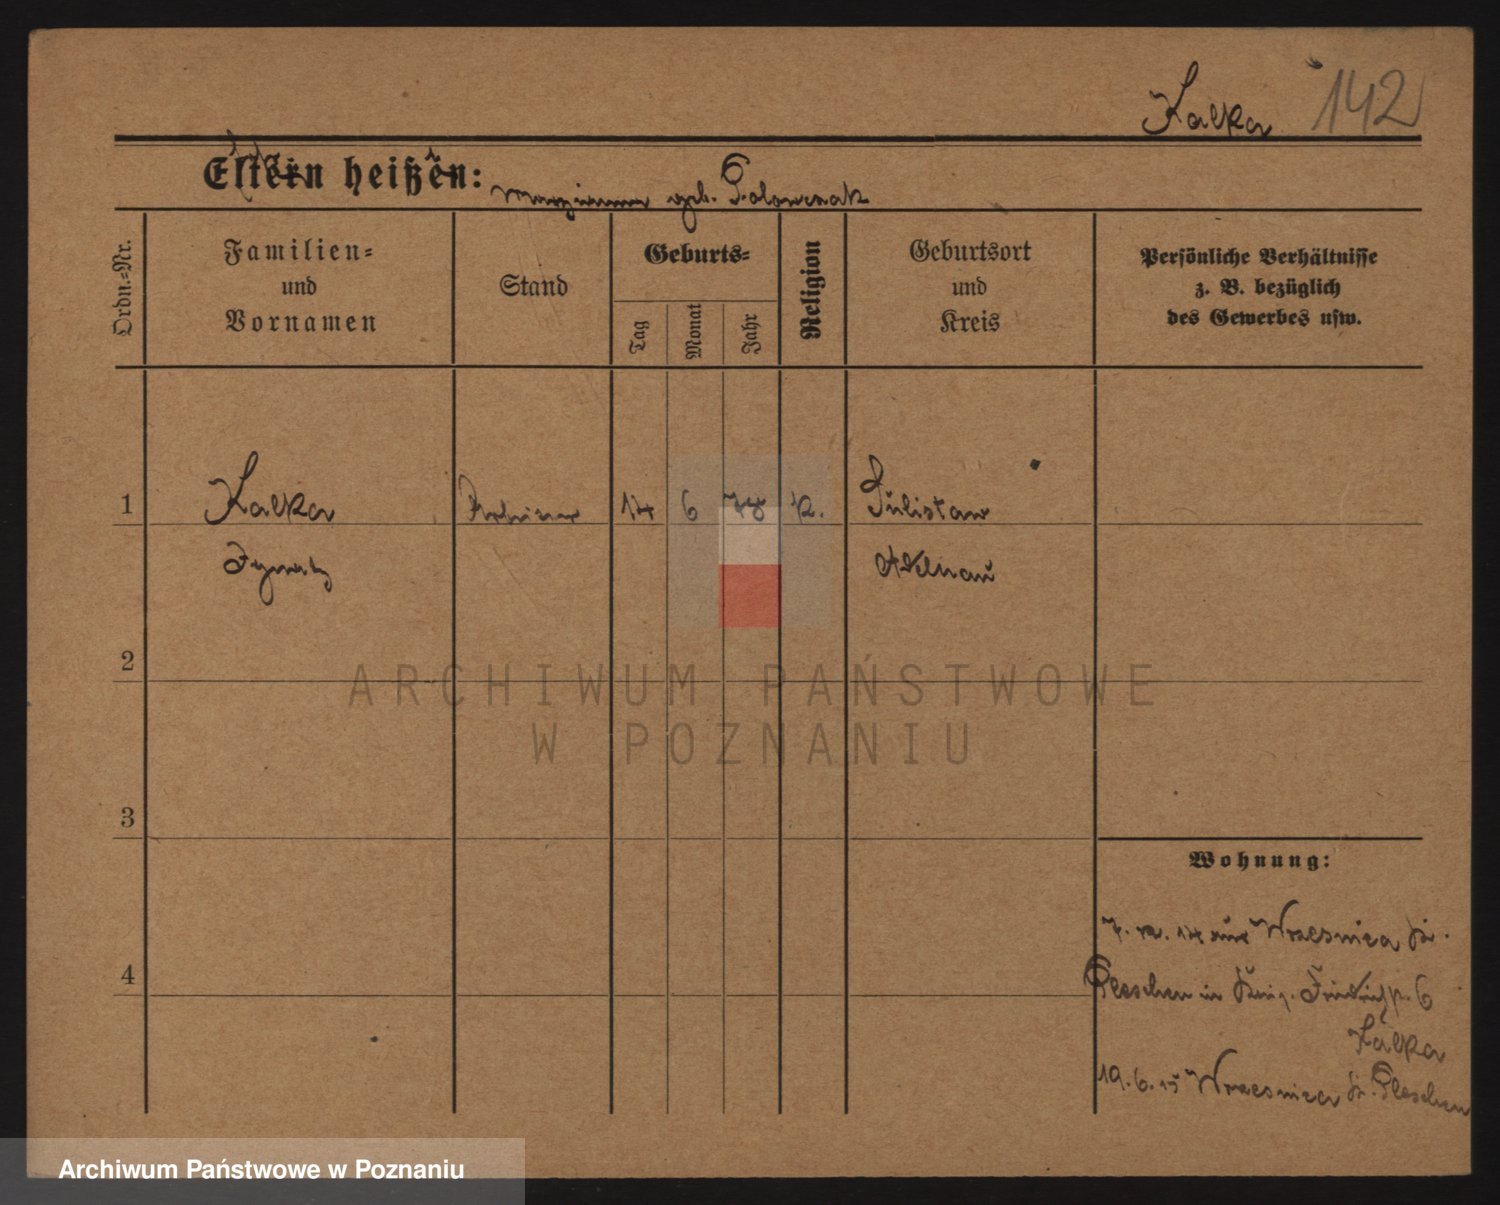 Kalka 142
Eltern heißen: geb. Polowczak
Ordn.-Nr.
Familien-
und
Vornamen
Stand
Geburts-
Tag
Monat
Jahr
Religion
Geburtsort
und
Kreis
Persönliche Verhältnisse
z. B. bezüglich
des Gewerbes usw.
1 Kalka 14 6 78 k. Sulislaw
Ignatz Adelnau
2
ARCHIWUM PAŃSTWOWE
W POZNANIU
3
Wohnung:
4
7. 12. 14 aus Wrzesnica Kr.
Pleschen in Friedrichstr. 6
Kalka
19. 6. 15 Wrzesnica Kr. Pleschen
Archiwum Państwowe w Poznaniu